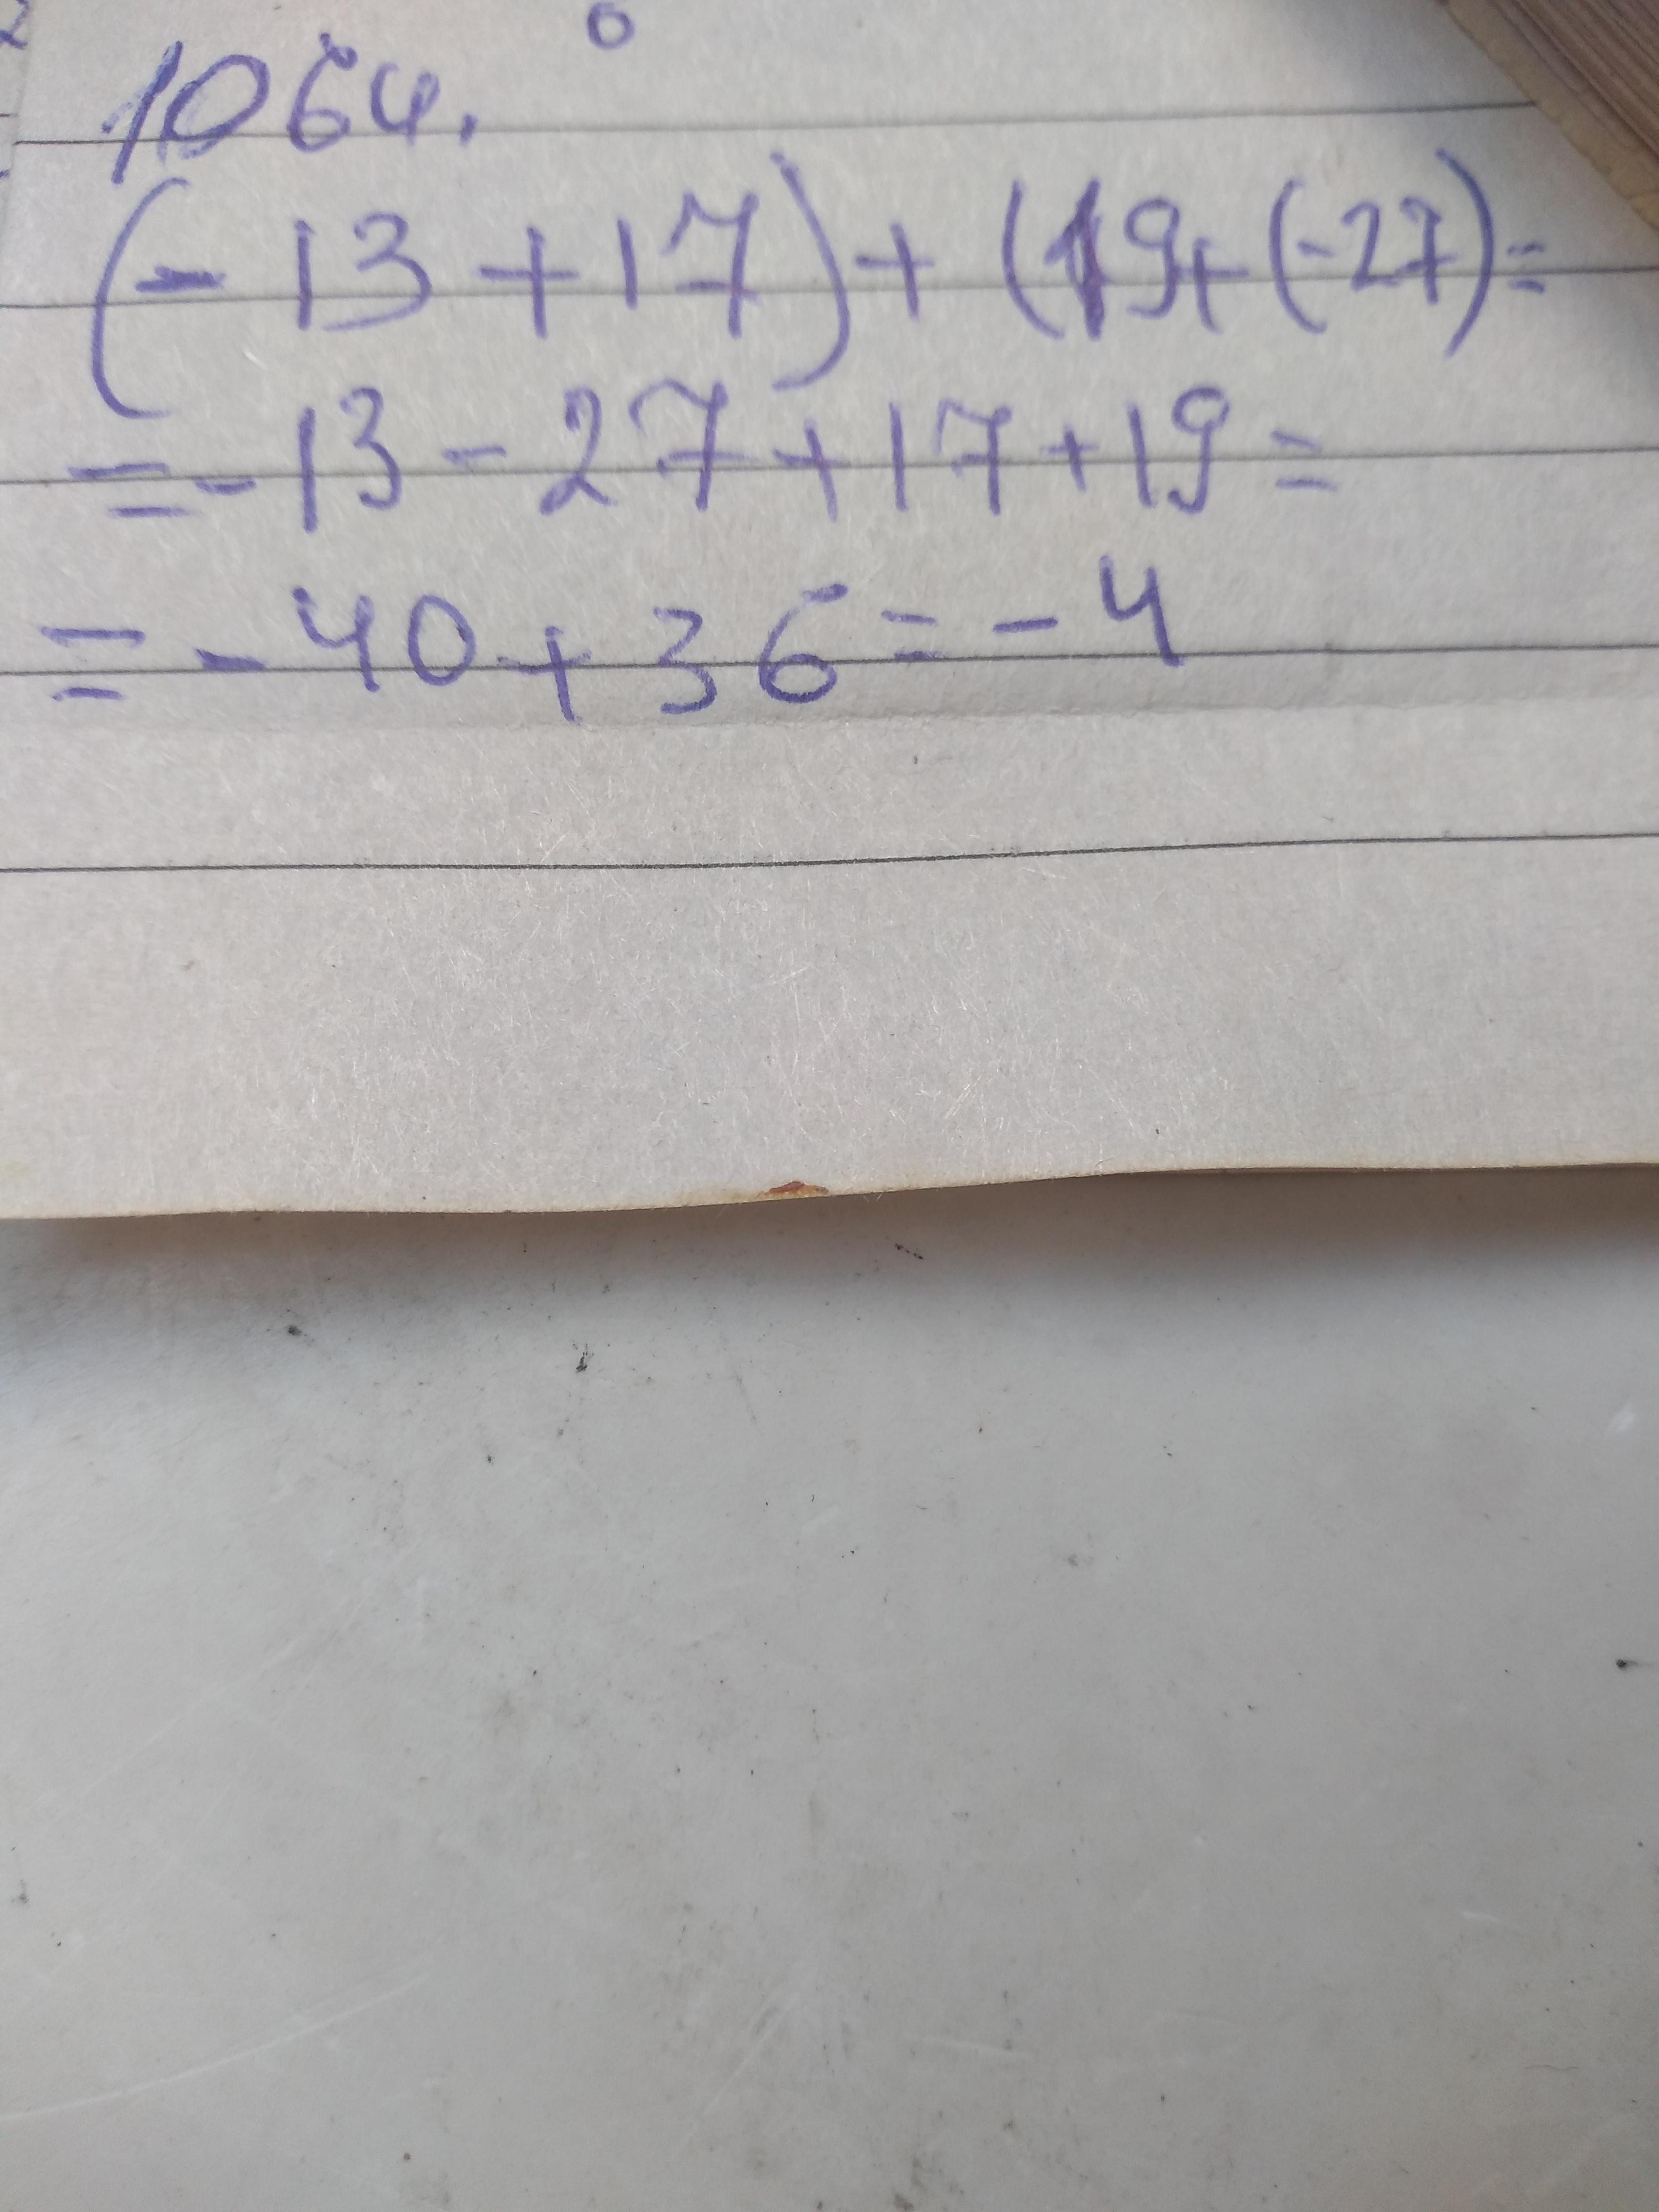 1064.
(-13+17)+(19+(-27)=
=-13-27+17+19=
=-40+36=-4